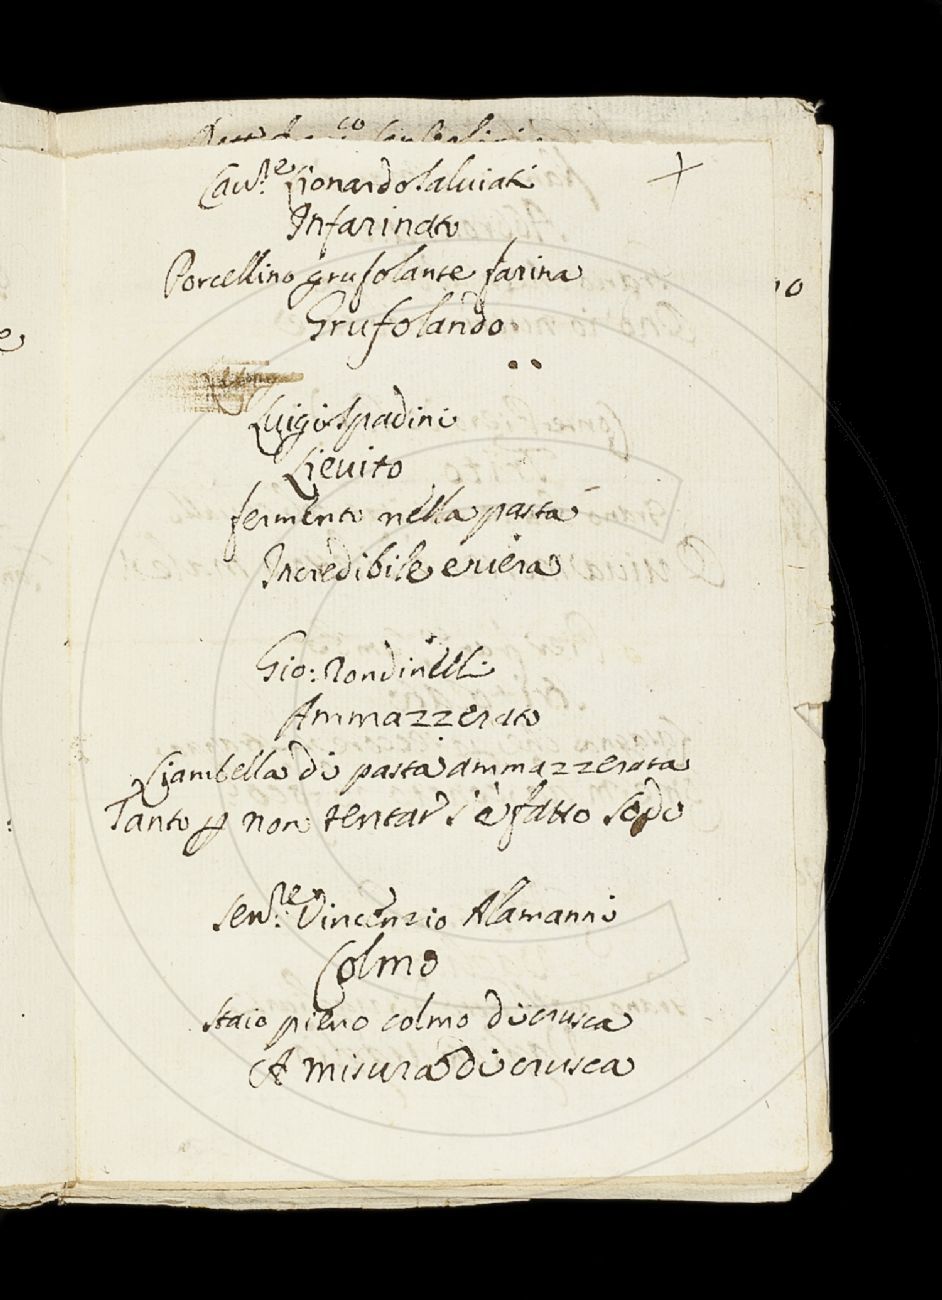 Cau.re Lionardo Saluiati
Infarinato
Porcellino grufolante farina
Grufolando
Luigi Spadini
Lieuito
fermento nella pasta
Incredibile e uera
Gio: Rondinelli
Ammazzerato
Ciambella di pasta ammazzerata
Tanto p non tentar s'è fatto sodo
Sen.re Vincenzio Alamanni
Colmo
Staio pieno colmo di crusca
A misura di crusca